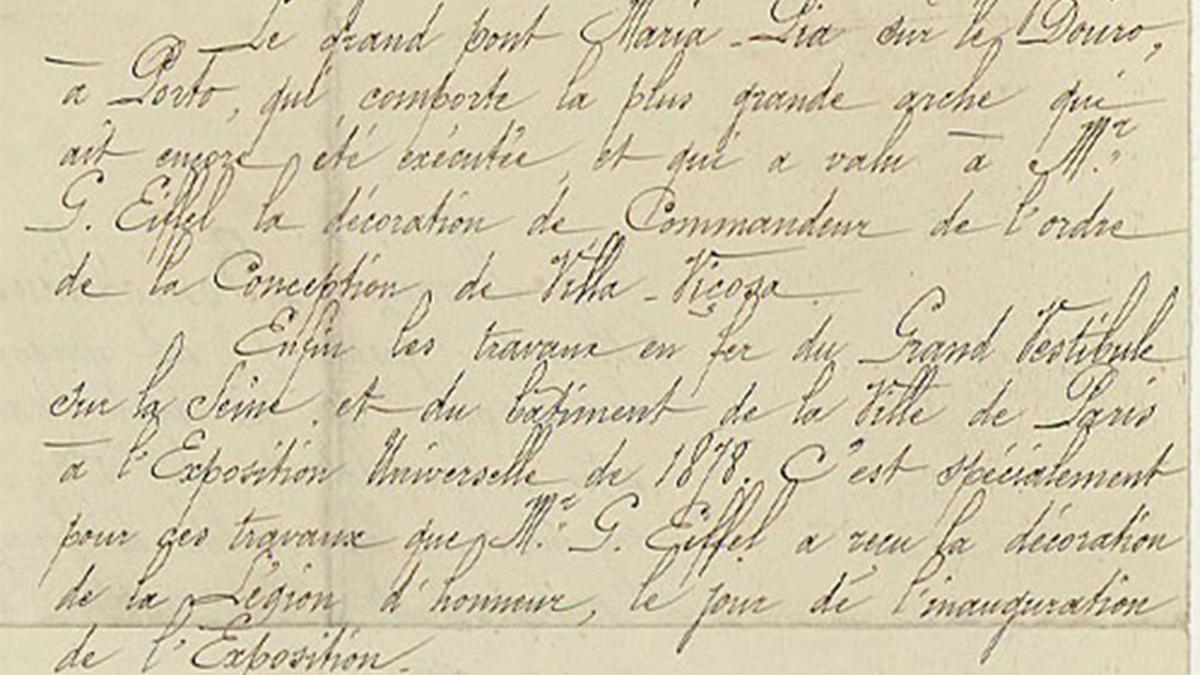 Le grand pont Maria-Pia sur le Douro,
à Porto, qui comporte la plus grande arche qui
ait encore été exécutée, et qui a valu à Mr.
G. Eiffel la décoration de Commandeur de l'ordre
de la Conception de Villa-Viçosa.
Enfin les travaux en fer du Grand Vestibule
sur la Seine, et du bâtiment de la Ville de Paris
à l'Exposition Universelle de 1878. C'est spécialement
pour ces travaux que Mr. G. Eiffel a reçu la décoration
de la Légion d'honneur, le jour de l'inauguration
de l'Exposition.